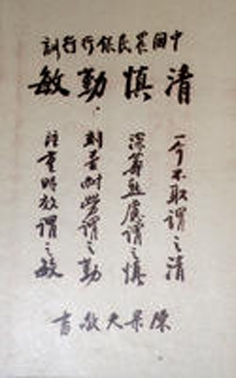 中國農民銀行行訓
清慎勤敏
一介不取謂之清
深算熟慮謂之慎
刻苦耐勞謂之勤
注重時效謂之敏
陳果夫敬書